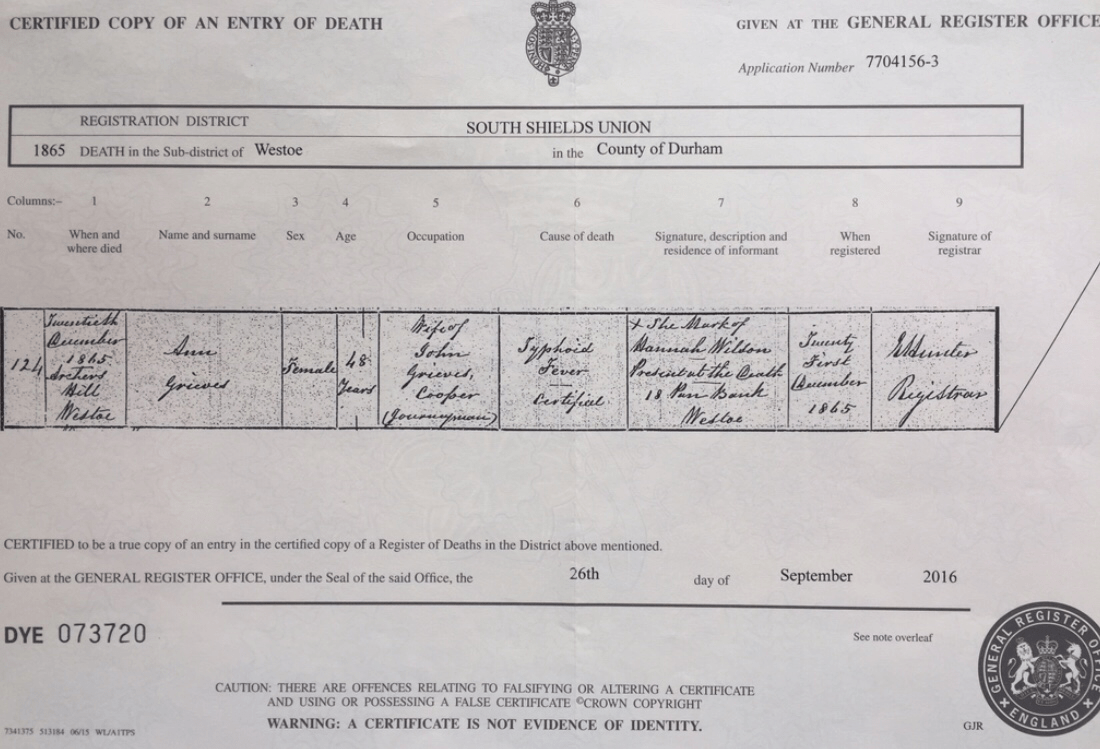 CERTIFIED COPY OF AN ENTRY OF DEATH
GIVEN AT THE GENERAL REGISTER OFFICE
Application Number 7704156-3
REGISTRATION DISTRICT
SOUTH SHIELDS UNION
1865 DEATH in the Sub-district of Westoe in the County of Durham
Columns:– 1 2 3 4 5 6 7 8 9
No. When and where died Name and surname Sex Age Occupation Cause of death Signature, description and residence of informant When registered Signature of registrar
124
Twentieth
December
1865
Hill
Westoe
Ann
Grieves
Female
48
Years
Wife of
John
Grieves,
Cooper
(Journeyman)
Typhoid
Fever
Certified
X The Mark of
Hannah Wilson
Present at the Death
18 Pan Bank
Westoe
Twenty
First
December
1865
Hunter
Registrar
CERTIFIED to be a true copy of an entry in the certified copy of a Register of Deaths in the District above mentioned.
Given at the GENERAL REGISTER OFFICE, under the Seal of the said Office, the 26th day of September 2016
DYE 073720
See note overleaf
CAUTION: THERE ARE OFFENCES RELATING TO FALSIFYING OR ALTERING A CERTIFICATE
AND USING OR POSSESSING A FALSE CERTIFICATE ©CROWN COPYRIGHT
WARNING: A CERTIFICATE IS NOT EVIDENCE OF IDENTITY.
GENERAL REGISTER OFFICE
ENGLAND
GJR
7341375 513184 06/15 WL/A1TPS